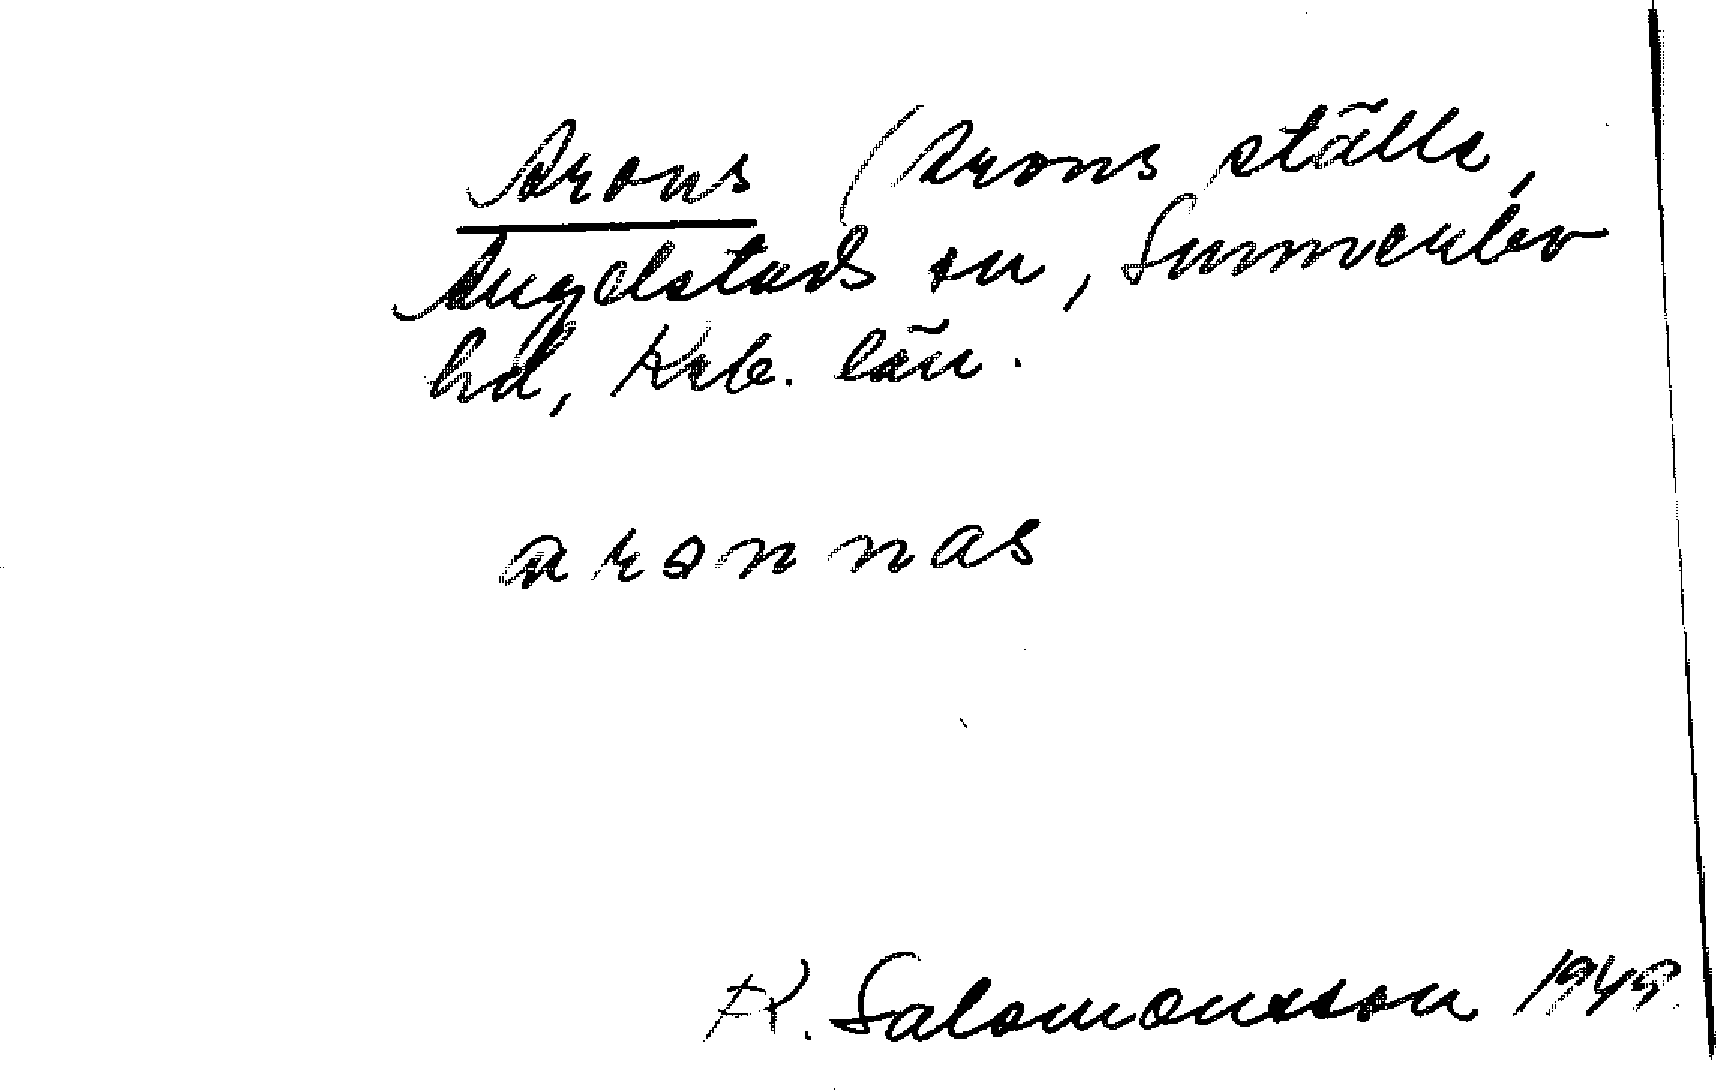 Arons (Arons ställe,
Angelstads sn, Sunnerbo
hd, Krb. län.
aronnas
K. Salomonsson 1949.